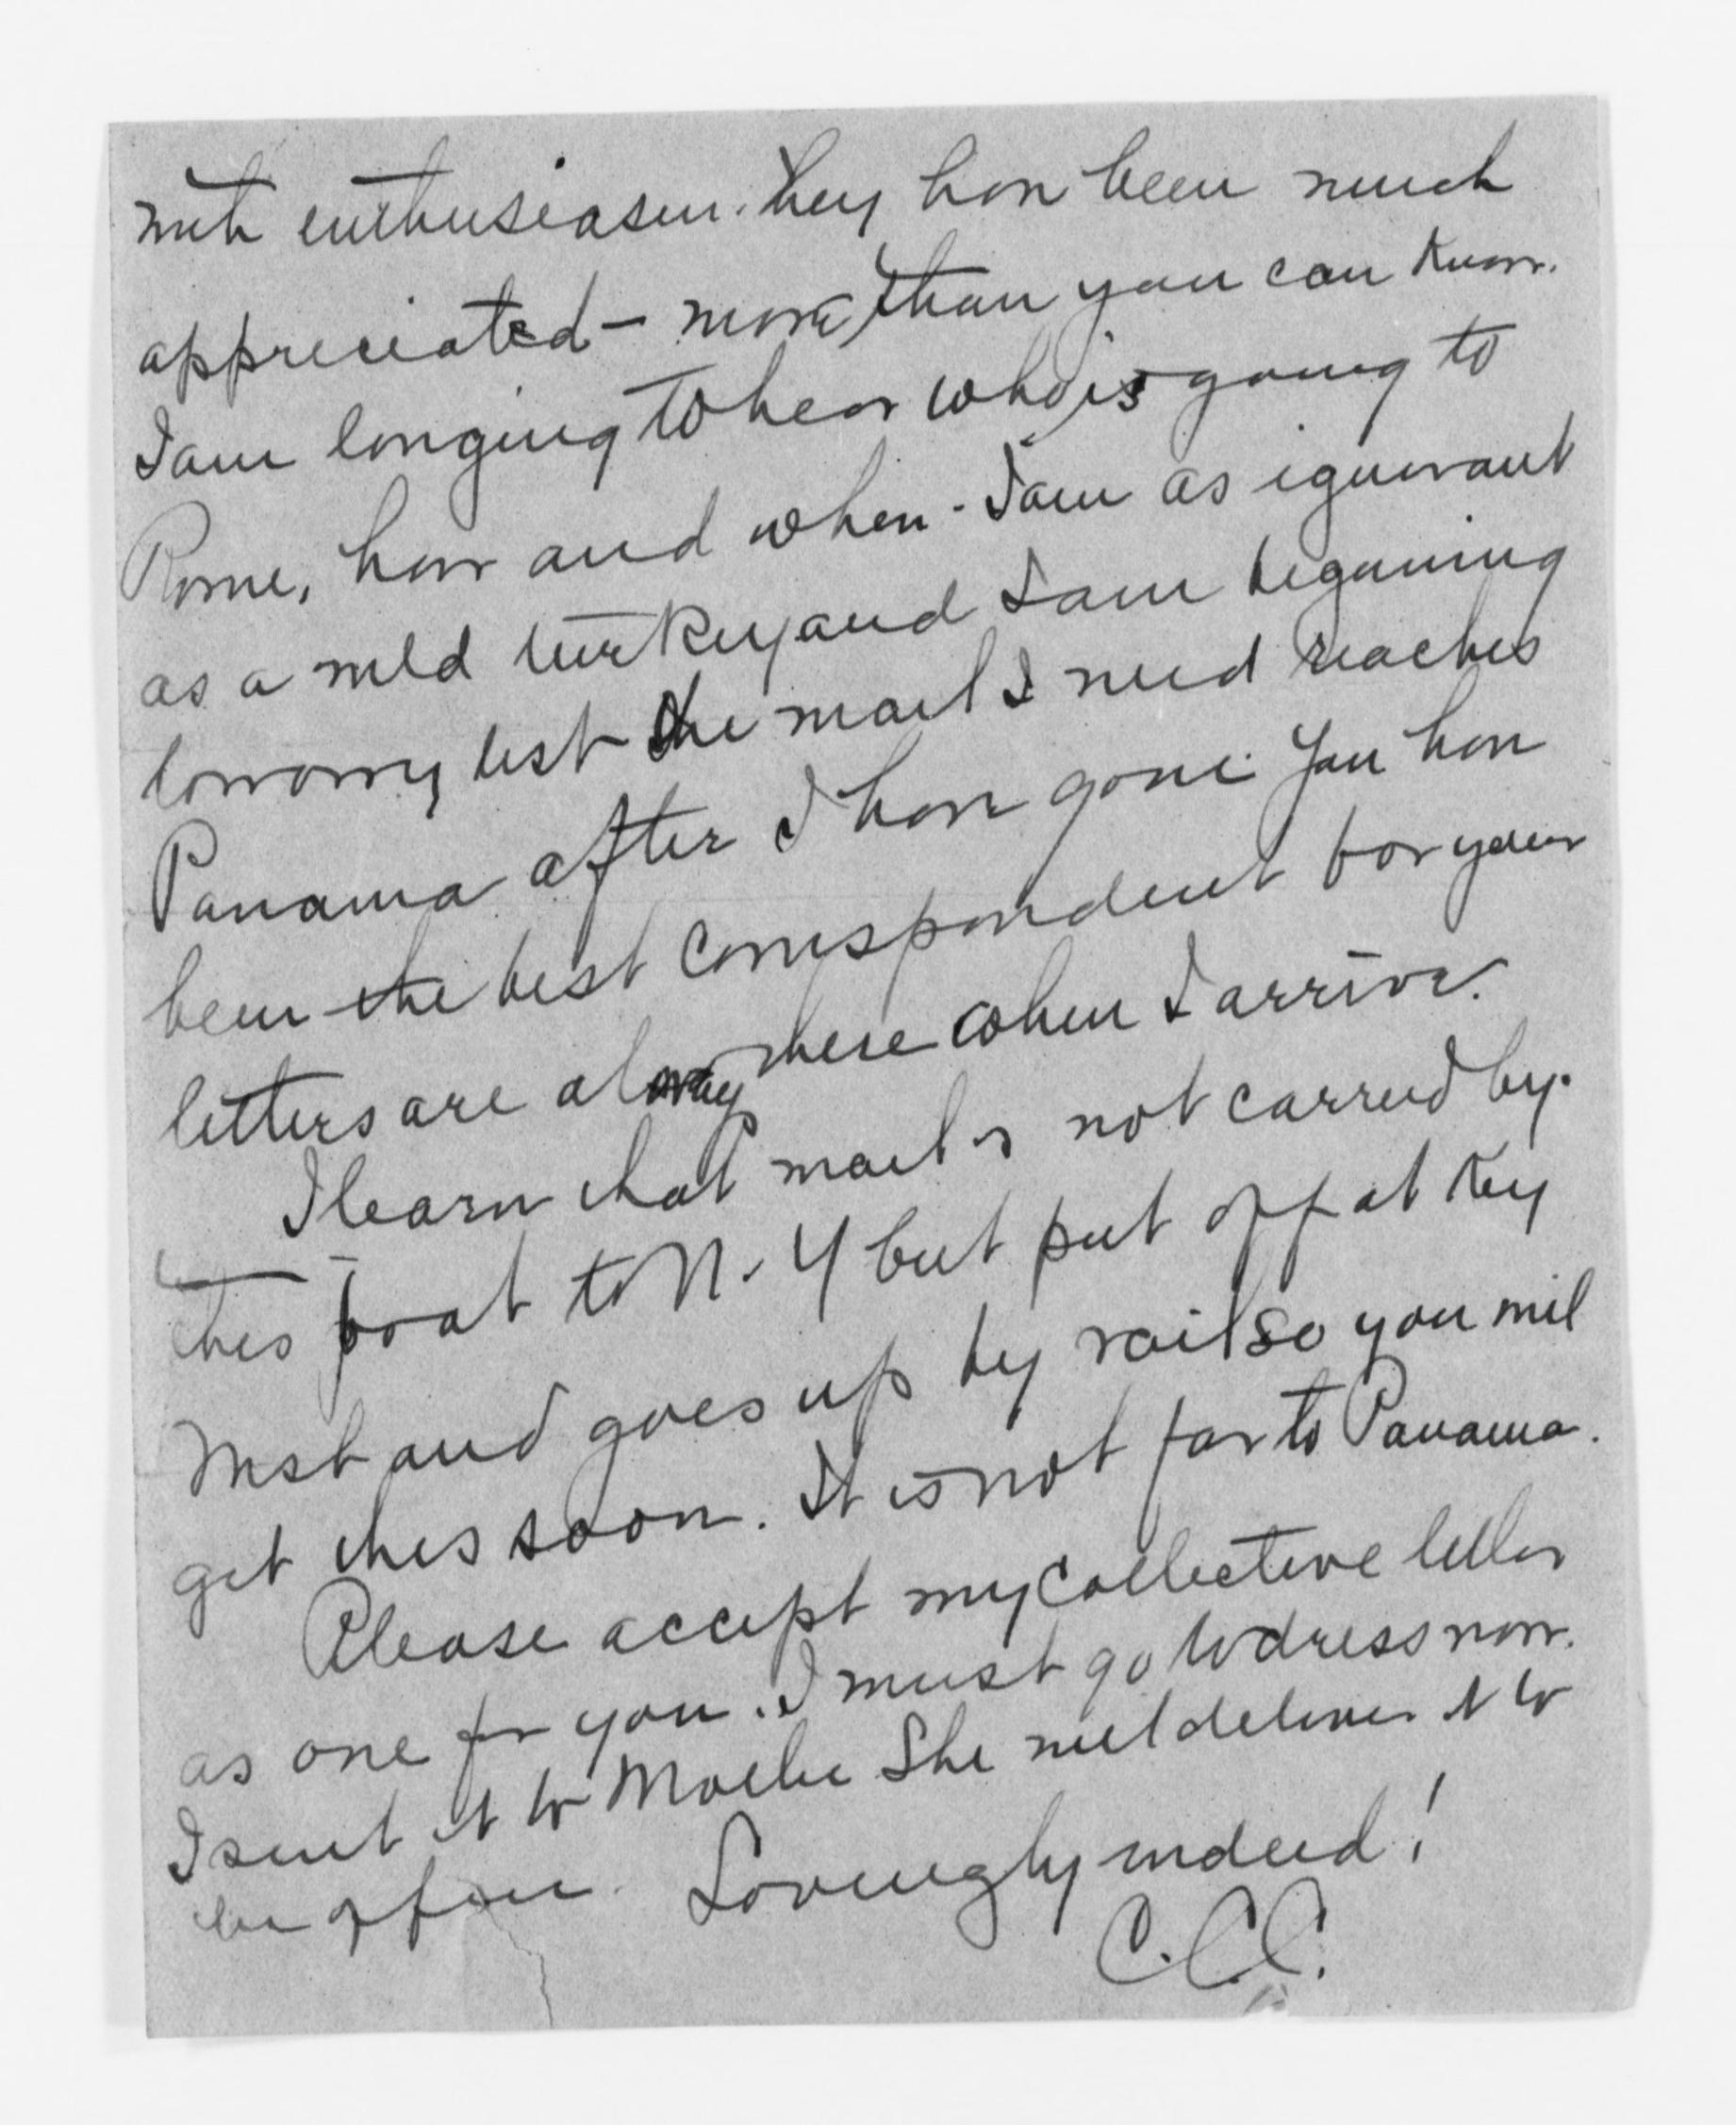 with enthusiasm. They have been much
appreciated – more than you can know.
I am longing to hear who is going to
Rome, how and when. I am as ignorant
as a wild turkey and I am beginning
to worry lest the mail I need reaches
Panama after I have gone. You have
been the best correspondent for your
letters are always here when I arrive.
I learn that mail is not carried by
this boat to N. Y but put off at Key
West and goes up by rail so you will
get this soon. It is not far to Panama.
Please accept my collective letter
as one for you. I must go to dress now.
I sent it to Mollie She will deliver it to
Lovingly indeed!
C.C.C.